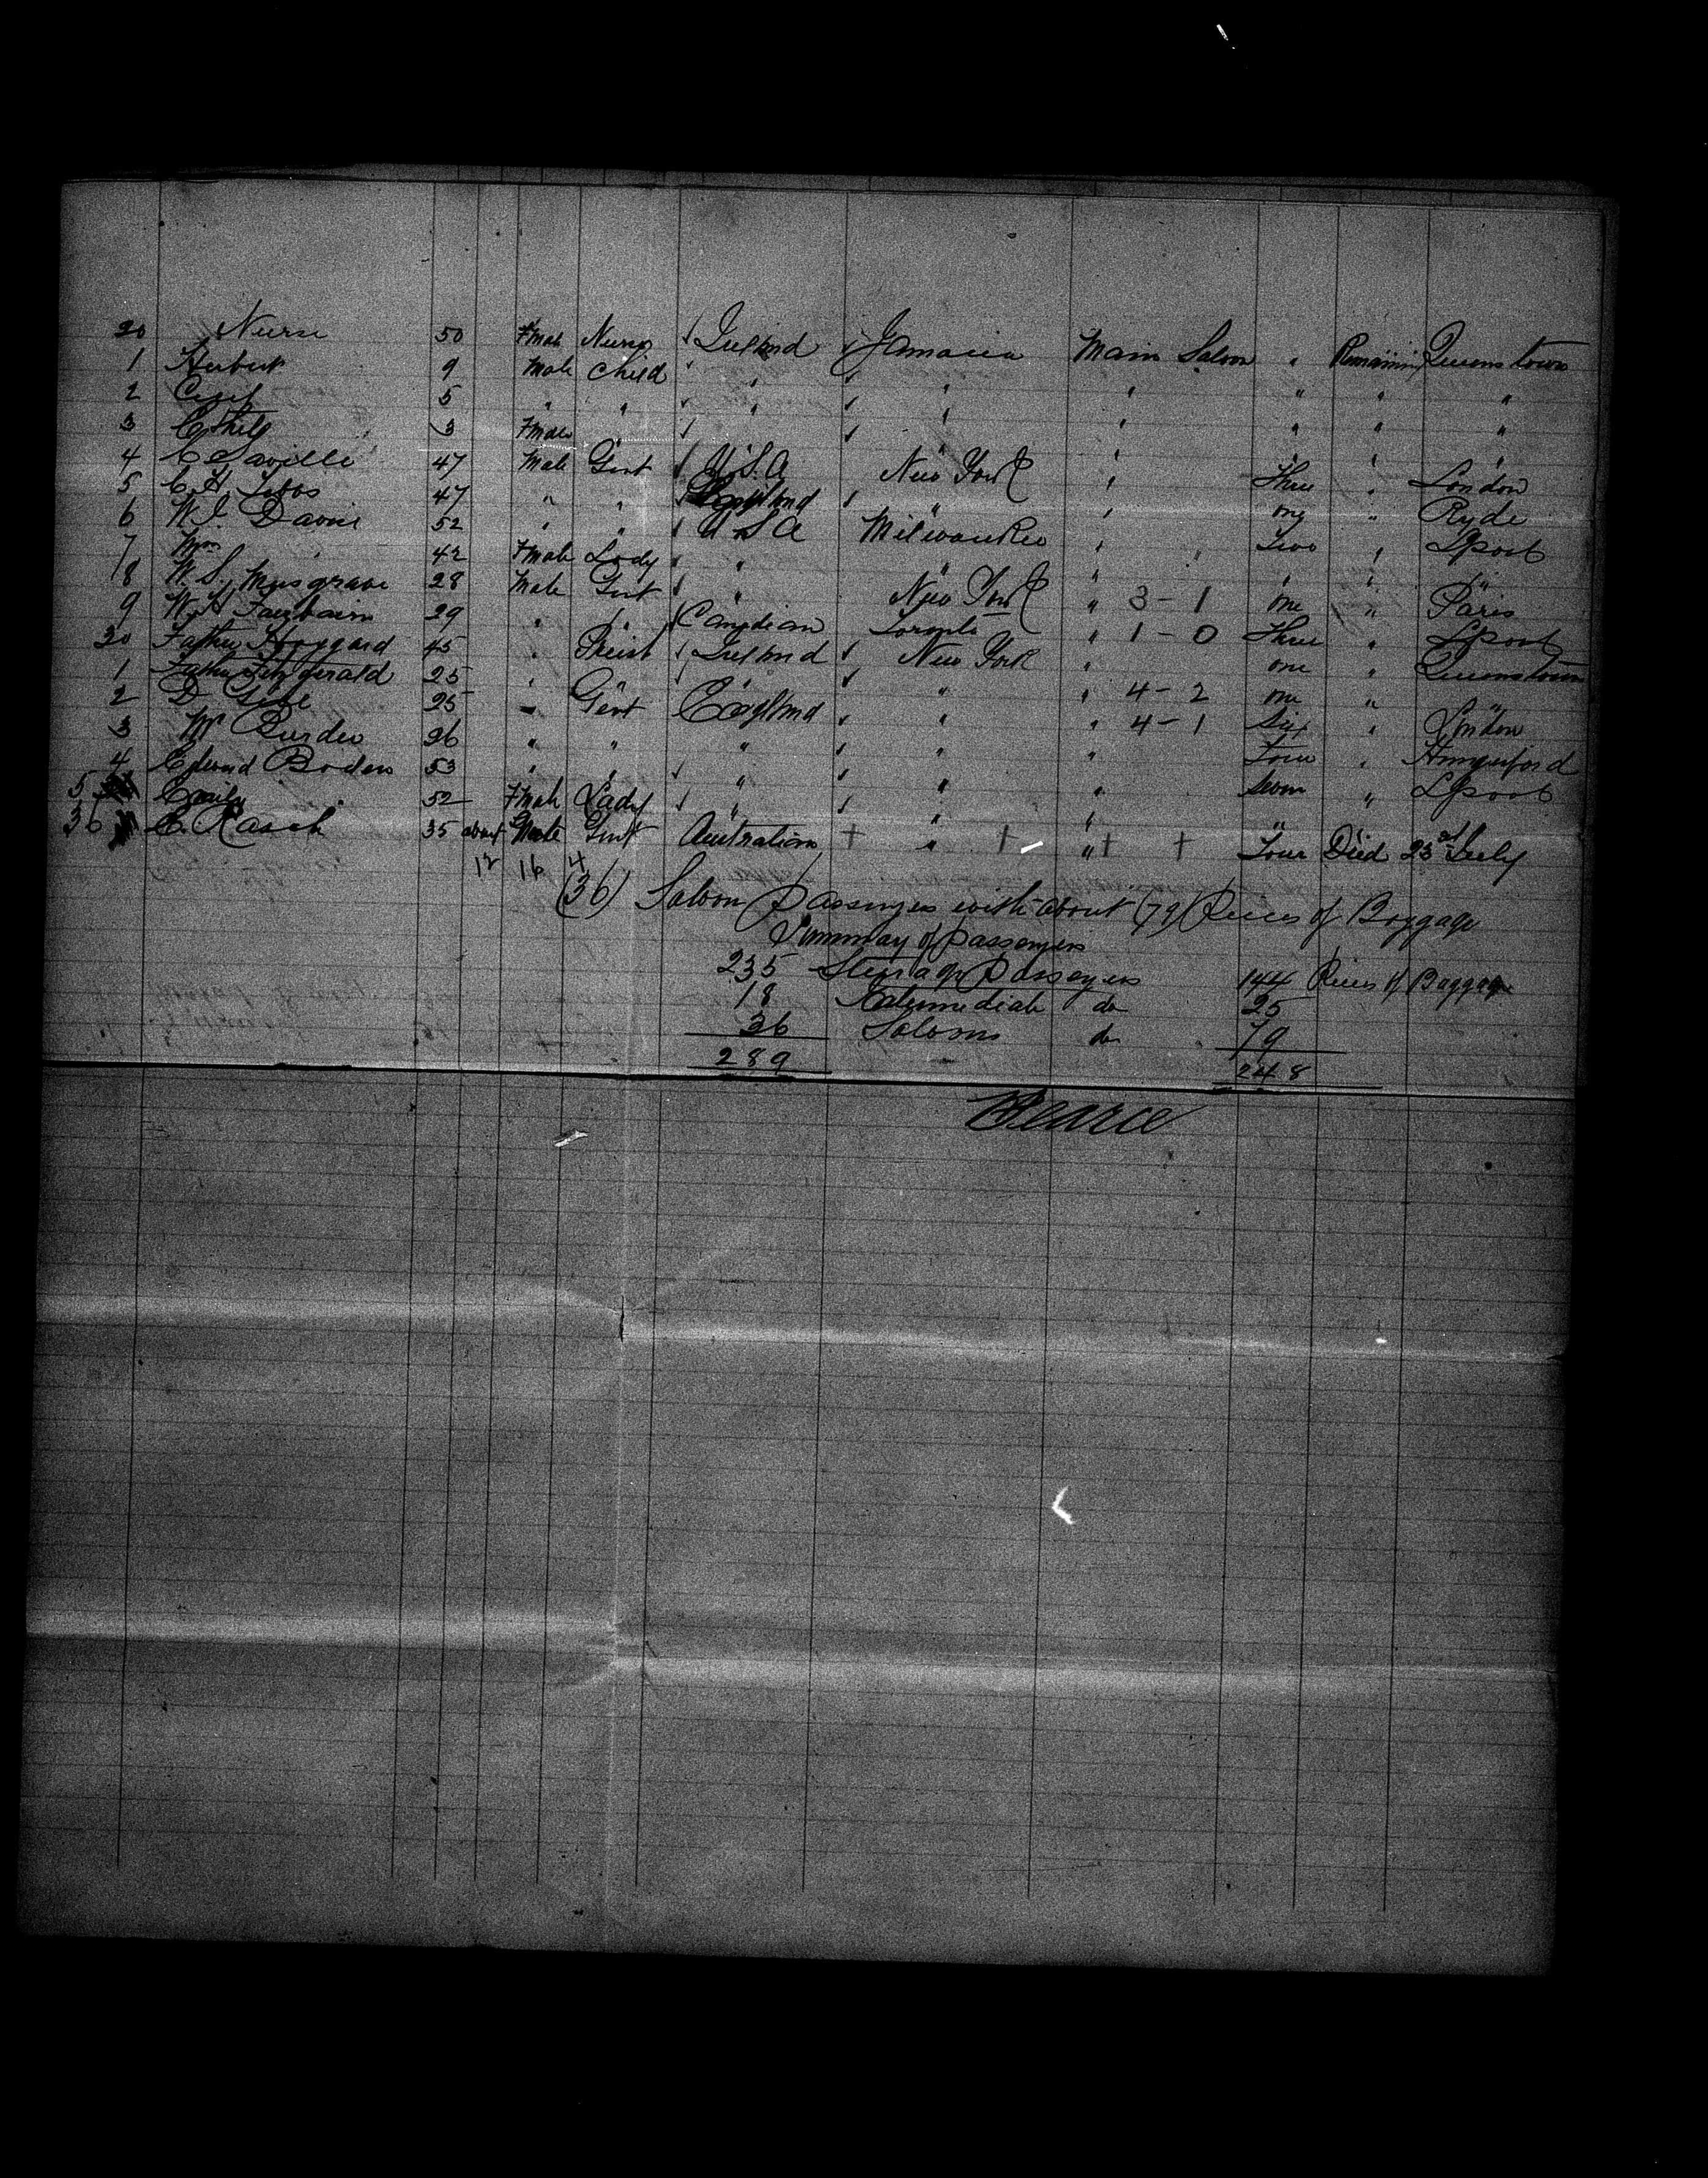 20 Nurse 50 Fmale Nurse Ireland Jamaica Main Saloon " Remaining Queenstown
1 Herbert 9 Male Child " " " " " "
2 Cecil 5 " " " " " " " "
3 Ethel 3 Fmale " " " " " " "
4 C Saville 47 Male Gent U.S.A New York " Three " London
5 C H 47 " " England " " one " Ryde
6 W. J. Davis 52 " " U S A Milwaukee " Two " Lpool
7 Mrs " 42 Fmale Lady " " " " " "
8 W. S. Musgrave 28 Male Gent " New York " 3 - 1 one " Paris
9 W. H Fairbairn 29 " " Canadian Toronto " 1 - 0 Three " Lpool
30 Father Hoggard 45 " Preist Ireland New York " one " Queenstown
1 Father Fitzgerald 25 " " " " " 4 - 2 one " "
2 D 25 " Gent England " " 4 - 1 Six " London
3 Mr Burden 26 " " " " " Four " Hungerford
4 Edward Boden 53 " " " " " Seven " Lpool
5 Emily 52 Fmale Lady " " " " " "
36 C. Rasch 35 about Male Gent Australian + " + " + + Four Died 23rd July
12 16 4
(36) Saloon Passengers with about (79) Pieces of Baggage
Summary of Passengers
235 Steerage Passengers 144 Pieces of Baggage
18 Intermediate do 25
36 Saloons do 79
289 248
Pearce